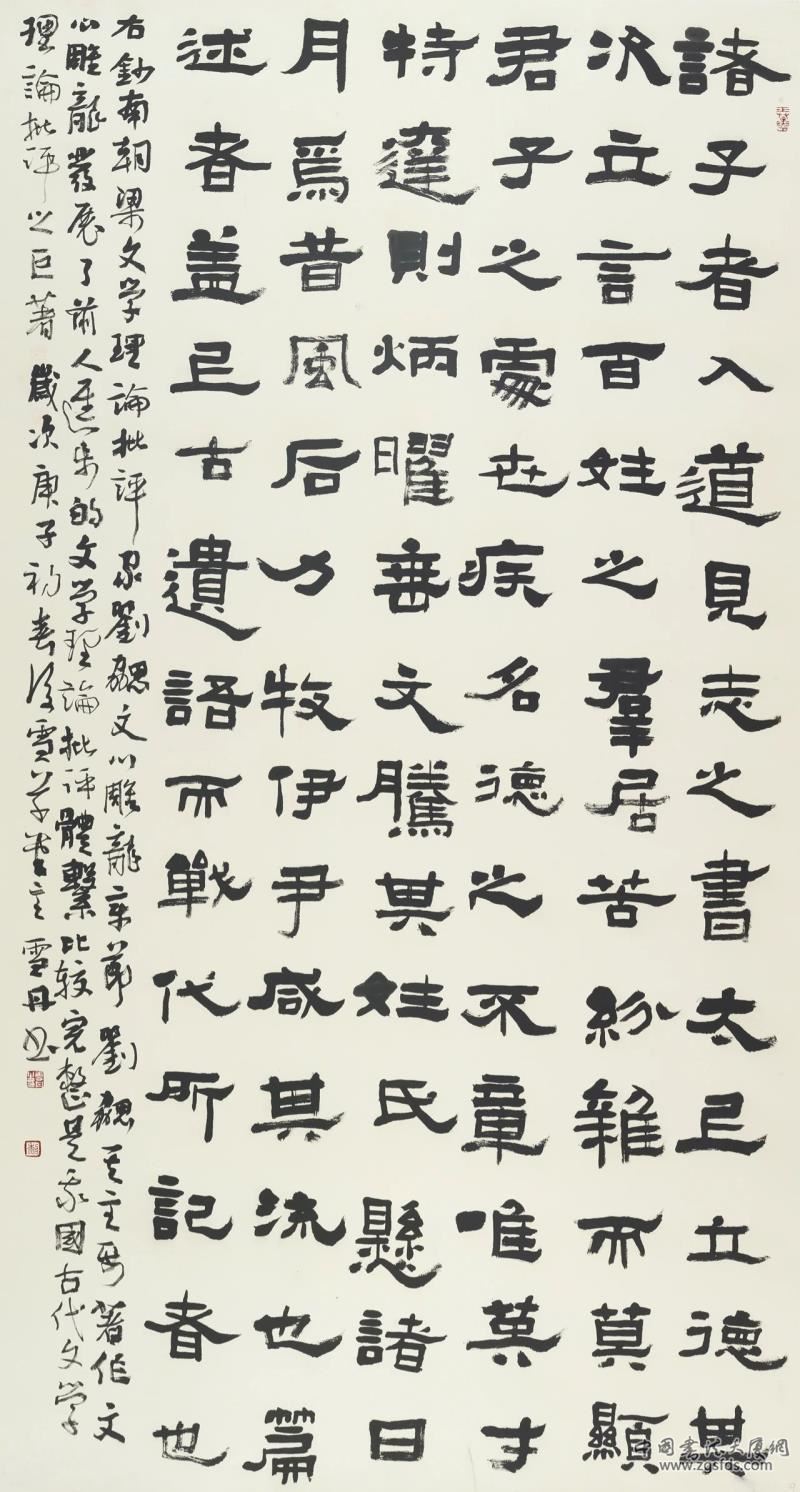 諸子者入道見志之書太上立德其
次立言百姓之羣居苦紛雜而莫顯
君子之處世疾名德之不章唯英才
特達則炳曜垂文騰其姓氏懸諸日
月焉昔風后力牧伊尹咸其流也篇
述者蓋上古遺語而戰代所記者也
右鈔南朝梁文學理論批評家劉勰文心雕龍章節劉勰其主要著作文
心雕龍發展了前人進步的文学理論批評體繫比较完整是我國古代文學
理論批評之巨著歲次庚子初春後雪草堂主雪丹書
中国书法大厦网
www.zgsfds.com